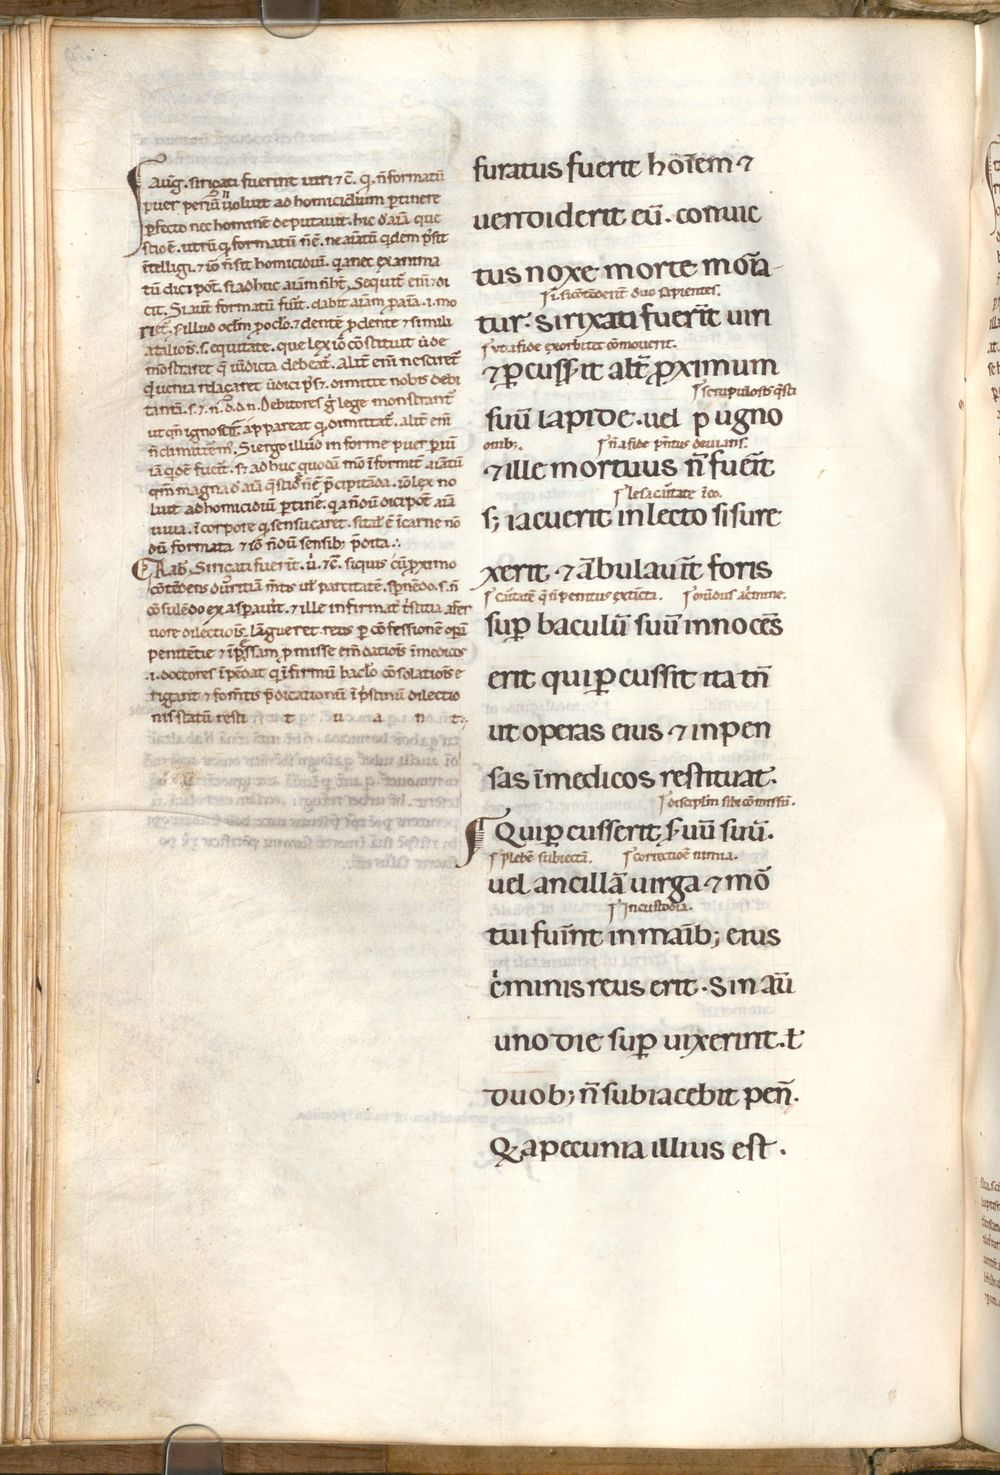 Aug̅. si rixati fuerint uiri ⁊ c̅. q̅. n̅ formatu̅
puer periu̅ n̅ uoluit ad homicidium p̲tinere
p̲fecto nec homine̅ deputauit. hic d̅ aia̅ que
stio e̅. utru̅ q̅ formatu̅ n̅ e̅. ne aiatu̅ q̅dem p̅sit
i̅telligi. ⁊ io̅ n̅ sit homicidiu̅. q̅a nec exanima
tu̅ dici pot̅. si adhuc aiam n̅ hb̅t. Sequit̅ eni̅ ⁊ di
cit. Si aut̅ formatu̅ fuit̅. dabit aia̅m p̲ aia̅. i. mo
riet̅. ⁊ illud oclm̅ p̲ oclo̅. ⁊ dente̅ p̲ dente ⁊ simili
a talionis. s. equitate. que lex io̅ co̅stituit u̅ de
mo̅straret q̅ ui̅dicta debeat̅. Alit̅ eni̅ nesciret̅
q̅d uenia relaxaret u̅ dici p̅s̅. dimitte nobis debi
ta n̅ra̅. s. ⁊. n̅. d. d. n. Debitores g̅ lege monstrant̅
ut qn̅ ignoscit̅ appareat q̅ dimittat̅. alit̅ eni̅
Si ergo illud in forme puer p̲iu̅
ia̅ q̅de̅ fuerit̅. s; ad huc quoda̅ mo̅ i̅formit̅ aiatu̅
qm̅ magna d̅ aia̅ q̅stio n̅ e̅ p̅cipitanda. io̅ lex no
luit ad homicidiu̅ p̲tine̅. q̅a n̅du̅ dici pot̅ aia̅
uiua. i̅ corpore q̅ sensu caret. si talis e̅ i̅ carne no̅
du̅ formata ⁊ io̅ n̅du̅ sensib; p̅dita.
Rab̅. Si rixati fuerit̅. u̅. ⁊ c̅. si quis cu̅ p̲ximo
co̅te̅dens duritia̅ m̅tis ul̅ parcitate̅. sp̅nendo. s. n̅
co̅sulendo exasp̲auit̅. ⁊ ille infirmat̅ t̅stitia a fer
uore dilectiois̅ la̅gueret. reus p̲ co̅fessione̅ op̲a̅
penite̅tie ⁊ ip̅ssam p̲misse em̅datiois̅ i̅medicos
.i. doctores i̅pe̅dat q̅ i̅firmu̅ baclo̅ co̅solatiois̅ e
rigant ⁊ fom̅tis p̅dicationu̅ i̅ p̅stinu̅ dilectio
nis statu̅ resti t u a n t.
furatus fuerit ho̅i̅em ⁊
uendiderit eu̅. conuic
tus noxe morte moria
.i. si co̅te̅derint duo sapientes.
tur. Si rixati fueri̅t uiri
ut a fide exorbitet co̅mouerit.
⁊ p̲cusserit alt̅ p̲ximum
scrupulosis q̅sti
suu̅ lapide. uel pugno
onib;. n̅ a fide pe̅nitus deuians.
⁊ ille mortuus n̅ fueri̅t
lesa ca̅ritate i̅ eo.
s; iacuerit in lecto si sure
xerit. ⁊ a̅bulaueri̅t foris
ca̅ritate̅ q̅ n̅ penitus exti̅cta. mu̅dus a c̅mine.
sup̲ baculu̅ suu̅ innoce̅s
erit qui p̲cussit ita tn̅
ut operas eius ⁊ inpen
sas i̅ medicos restituat.
disciplin̅ sibi co̅missu̅.
Qui p̲cusserit seruu̅ suu̅.
plebe̅ subiecta̅. correctio̅e nimia.
uel ancilla̅ uirga ⁊ mo̅r
in custodia.
tui fueri̅nt in mani̅b; eius
c̅minis reus erit. Sin au̅
uno die sup̲ uixerint. ł
duob; n̅ subiacebit pen̅.
Qia pecunia illius est.